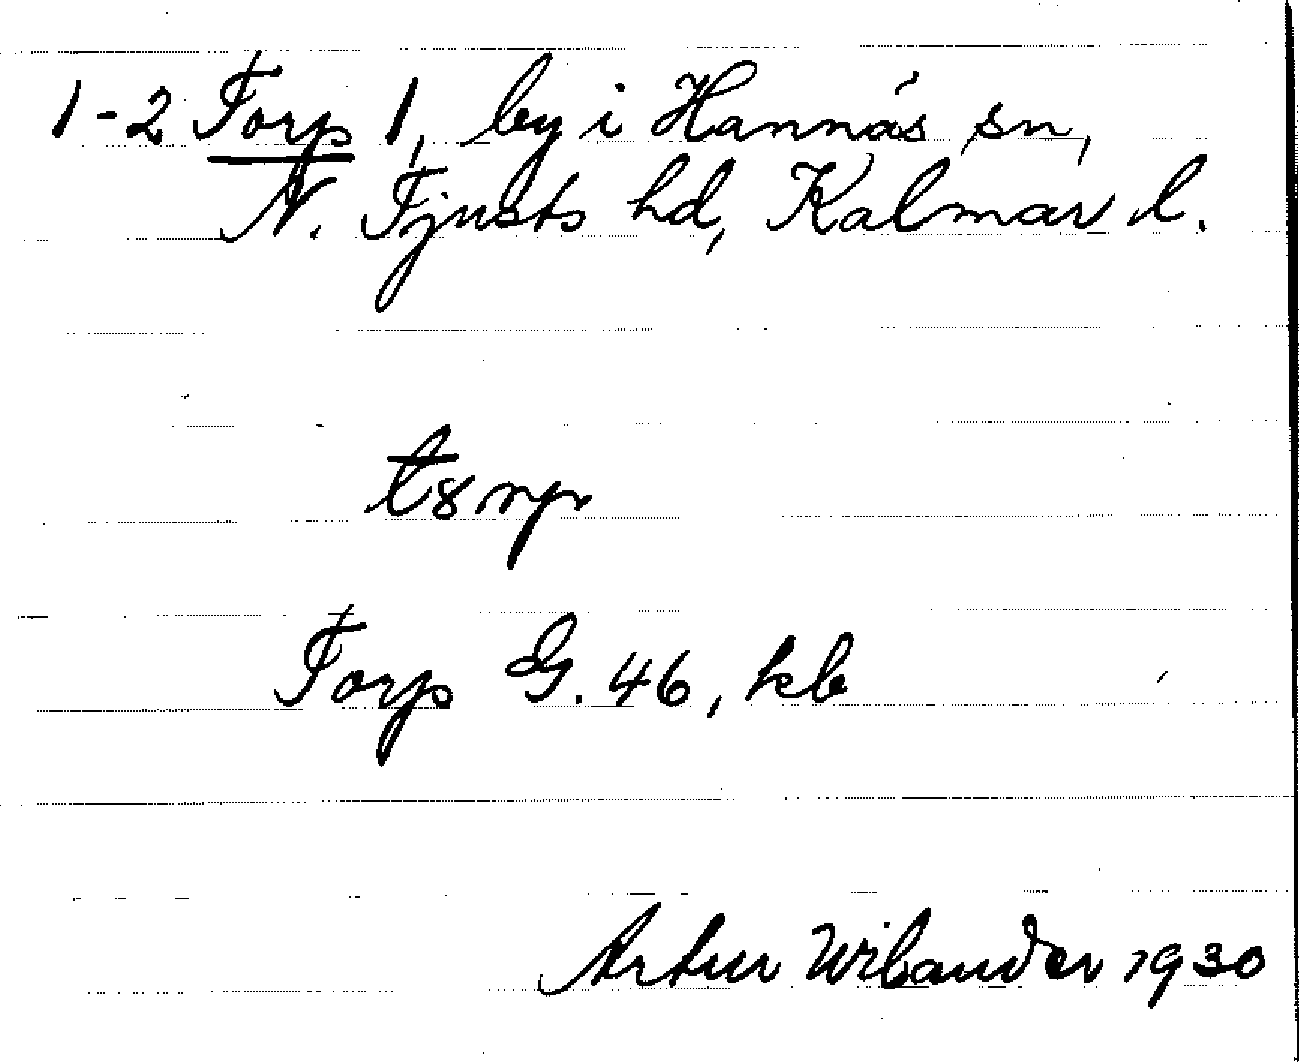 1-2 Torp 1, by i Hannäs sn,
N. Tjusts hd, Kalmar l.
Torp G. 46, kb
Artur Wilander 1930